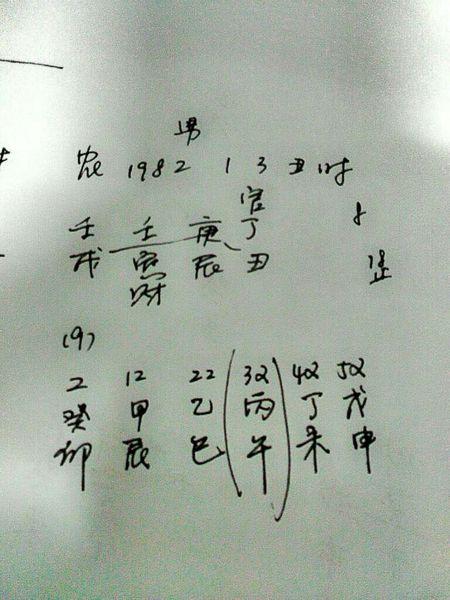 男
农 1982 1 3 丑时
官
壬 壬 庚 丁
戌 寅 辰 丑
财
(9)
2 12 22 (32) 42 52
癸 甲 乙 丙 丁 戊
卯 辰 巳 午 未 申